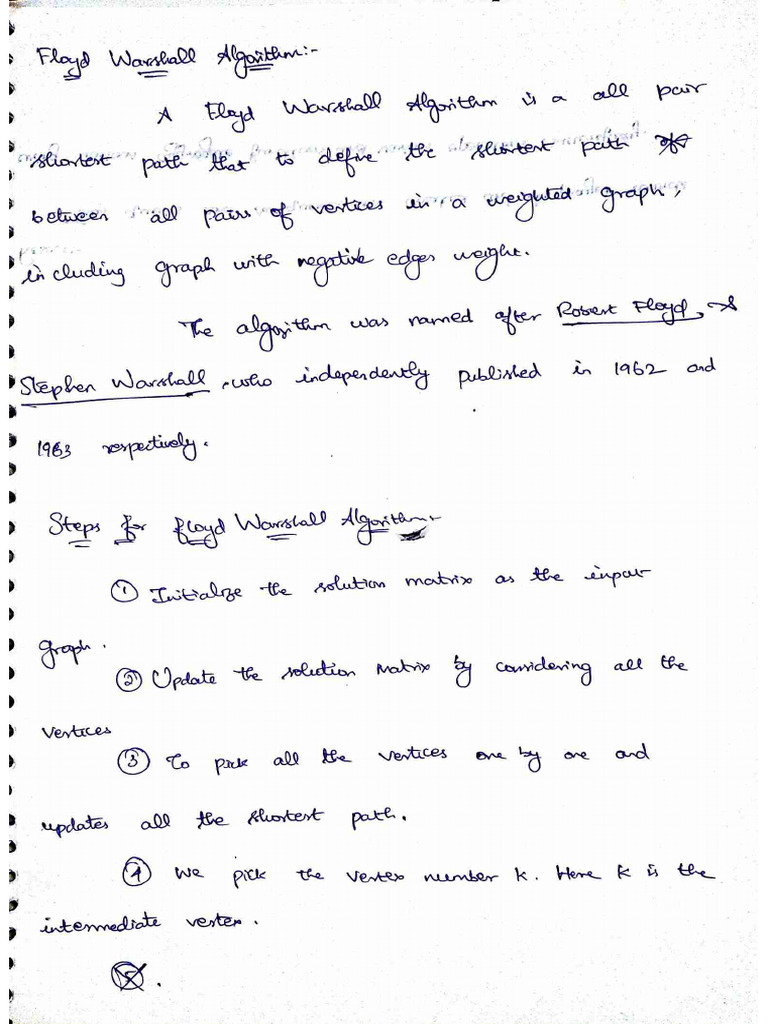 Floyd Warshall Algorithm:-
A Floyd Warshall Algorithm is a all pair
shortest path that to define the shortest path
between all pairs of vertices in a weighted graph,
including graph with negative edges weight.
The algorithm was named after Robert Floyd, &
Stephen Warshall, who independently published in 1962 and
1963 respectively.
Steps for Floyd Warshall Algorithm:-
① Initialize the solution matrix as the input
graph.
② Update the solution matrix by considering all the
vertices
③ To pick all the vertices one by one and
updates all the shortest path.
④ We pick the vertex number k. Here k is the
intermediate vertex.